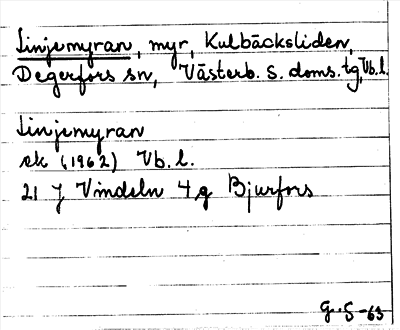 Linjemyran, myr, Kulbäcksliden,
Degerfors sn, Västerb. S. doms. tg, Vb. l.
Linjemyran
ek (1962) Vb. l.
21 J Vindeln 4 g Bjurfors
G.S-63